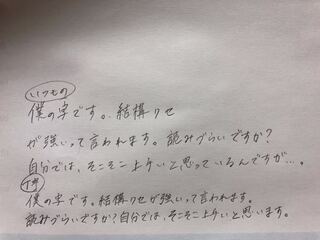 いつもの
僕の字です。結構クセ
が強いって言われます。読みづらいですか?
自分では、そこそこ上手いと思っているんですが…。
丁寧
僕の字です。結構クセが強いって言われます。
読みづらいですか?自分では、そこそこ上手いと思います。